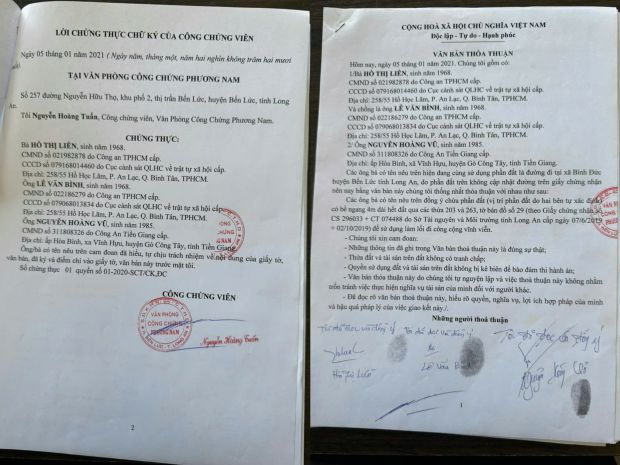 LỜI CHỨNG THỰC CHỮ KÝ CỦA CÔNG CHỨNG VIÊN
Ngày 05 tháng 01 năm 2021 ( Ngày năm, tháng một, năm hai nghìn không trăm hai mươi
TẠI VĂN PHÒNG CÔNG CHỨNG PHƯƠNG NAM
Số 257 đường Nguyễn Hữu Thọ, khu phố 2, thị trấn Bến Lức, huyện Bến Lức, tỉnh Long
An.
Tôi Nguyễn Hoàng Tuấn, Công chứng viên, Văn Phòng Công Chứng Phương Nam.
CHỨNG THỰC:
Bà HỒ THỊ LIÊN, sinh năm 1968.
CMND số 021982878 do Công an TPHCM cấp.
CCCD số 079168014460 do Cục cảnh sát QLHC về trật tự xã hội cấp.
Địa chỉ: 258/55 Hồ Học Lãm, P. An Lạc, Q. Bình Tân, TPHCM.
Ông LÊ VĂN BÌNH, sinh năm 1968.
CMND số 022186279 do Công an TPHCM cấp.
CCCD số 079068013834 do Cục cảnh sát QLHC về trật tự xã hội cấp.
Địa chỉ: 258/55 Hồ Học Lãm, P. An Lạc, Q. Bình Tân, TPHCM.
Ông NGUYỄN HOÀNG VŨ, sinh năm 1985.
CMND số 311808326 do Công An Tiền Giang cấp.
Địa chỉ: ấp Hòa Bình, xã Vĩnh Hựu, huyện Gò Công Tây, tỉnh Tiền Giang.
Ông/bà có tên nêu trên cam đoan đã hiểu, tự chịu trách nhiệm về nội dung của giấy tờ,
văn bản, đã ký và điểm chỉ vào giấy tờ, văn bản này trước mặt tôi.
Số chứng thực 01 quyển số 01-2020-SCT/CK,ĐC
CÔNG CHỨNG VIÊN
VĂN PHÒNG
CÔNG CHỨNG
PHƯƠNG NAM
Nguyễn Hoàng Tuấn
2
CỘNG HOÀ XÃ HỘI CHỦ NGHĨA VIỆT NAM
Độc lập - Tự do - Hạnh phúc
VĂN BẢN THỎA THUẬN
Hôm nay, ngày 05 tháng 01 năm 2021. Chúng tôi gồm có:
1/Bà HỒ THỊ LIÊN, sinh năm 1968.
CMND số 021982878 do Công an TPHCM cấp.
CCCD số 079168014460 do Cục cảnh sát QLHC về trật tự xã hội cấp.
Địa chỉ: 258/55 Hồ Học Lãm, P. An Lạc, Q. Bình Tân, TPHCM.
Và chồng là ông LÊ VĂN BÌNH, sinh năm 1968.
CMND số 022186279 do Công an TPHCM cấp.
CCCD số 079068013834 do Cục cảnh sát QLHC về trật tự xã hội cấp.
Địa chỉ: 258/55 Hồ Học Lãm, P. An Lạc, Q. Bình Tân, TPHCM.
2/ Ông NGUYỄN HOÀNG VŨ, sinh năm 1985.
CMND số 311808326 do Công An Tiền Giang cấp.
Địa chỉ: ấp Hòa Bình, xã Vĩnh Hựu, huyện Gò Công Tây, tỉnh Tiền Giang.
Các ông/bà có tên nêu trên hiện đang cùng sử dụng phần đất là đường đi tại xã Bình Đức
huyện Bến Lức tỉnh Long An, do phần đất trên không cập nhật đường trên giấy chứng nhận
nên nay bằng văn bản này chúng tôi thống nhất thỏa thuận với nhau như sau:
Các ông/ bà có tên trên đồng ý chừa phần đất (vị trí đất do hai bên tự xác định)
có bề ngang 4m dài hết đất qua các thửa 203 và 263, tờ bản đồ số 29 (theo Giấy chứng nhận số
CS 296033 + CT 074488 do Sở Tài nguyên và Môi trường tỉnh Long An cấp ngày 07/6/2019
+ 02/10/2019) để sử dụng làm lối đi công cộng vĩnh viễn.
- Chúng tôi xin cam đoan:
- Những thông tin đã ghi trong Văn bản thoả thuận này là đúng sự thật;
- Thửa đất và tài sản trên đất không có tranh chấp;
- Quyền sử dụng đất và tài sản trên đất không bị kê biên để bảo đảm thi hành án;
- Văn bản thỏa thuận này do chúng tôi tự nguyện lập và việc thoả thuận này không nhằm
trốn tránh việc thực hiện nghĩa vụ tài sản của mình đối với người khác.
- Đã đọc rõ văn bản thoả thuận này, hiểu rõ quyền, nghĩa vụ, lợi ích hợp pháp của mình
và hậu quả pháp lý của việc giao kết này./.
Những người thoả thuận
Lê Văn Bình
1